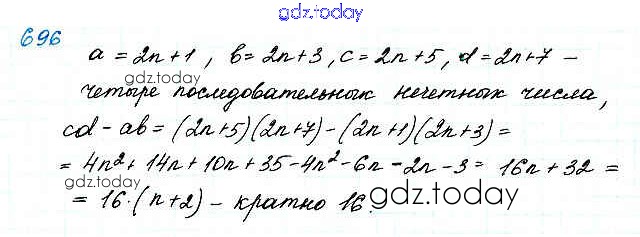 gdz.today
696
a = 2n+1, b = 2n+3, c = 2n+5, d = 2n+7 –
gdz.today
четыре последовательных нечетных числа,
cd - ab = (2n+5)(2n+7) - (2n+1)(2n+3) =
= 4n² + 14n + 10n + 35 - 4n² - 6n - 2n - 3 = 16n + 32 =
gdz.today
= 16·(n+2) – кратно 16.
gdz.today